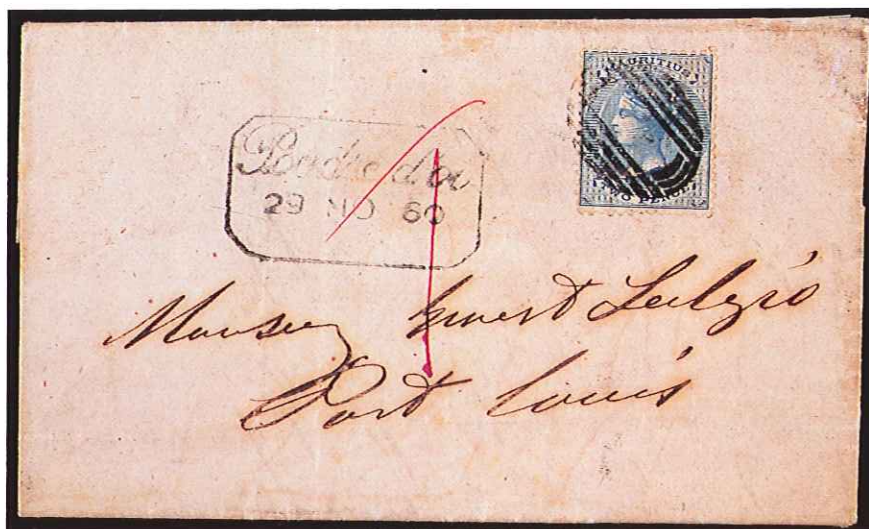 MAURITIUS
TWO PENCE
Poudre d'or
29 NO 60
Monsieur Ernest Leclézio
Port Louis